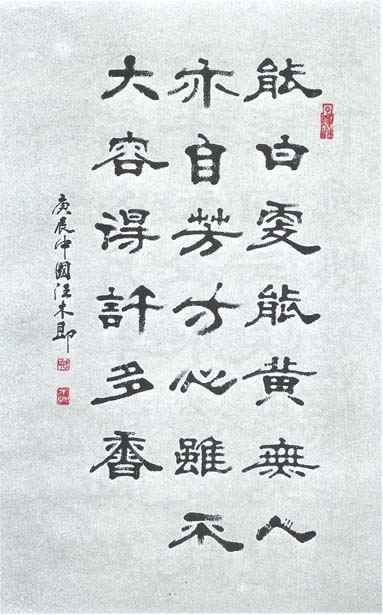 能白更能黃無人
亦自芳寸心雖不
大容得許多香
庚辰中國汪木